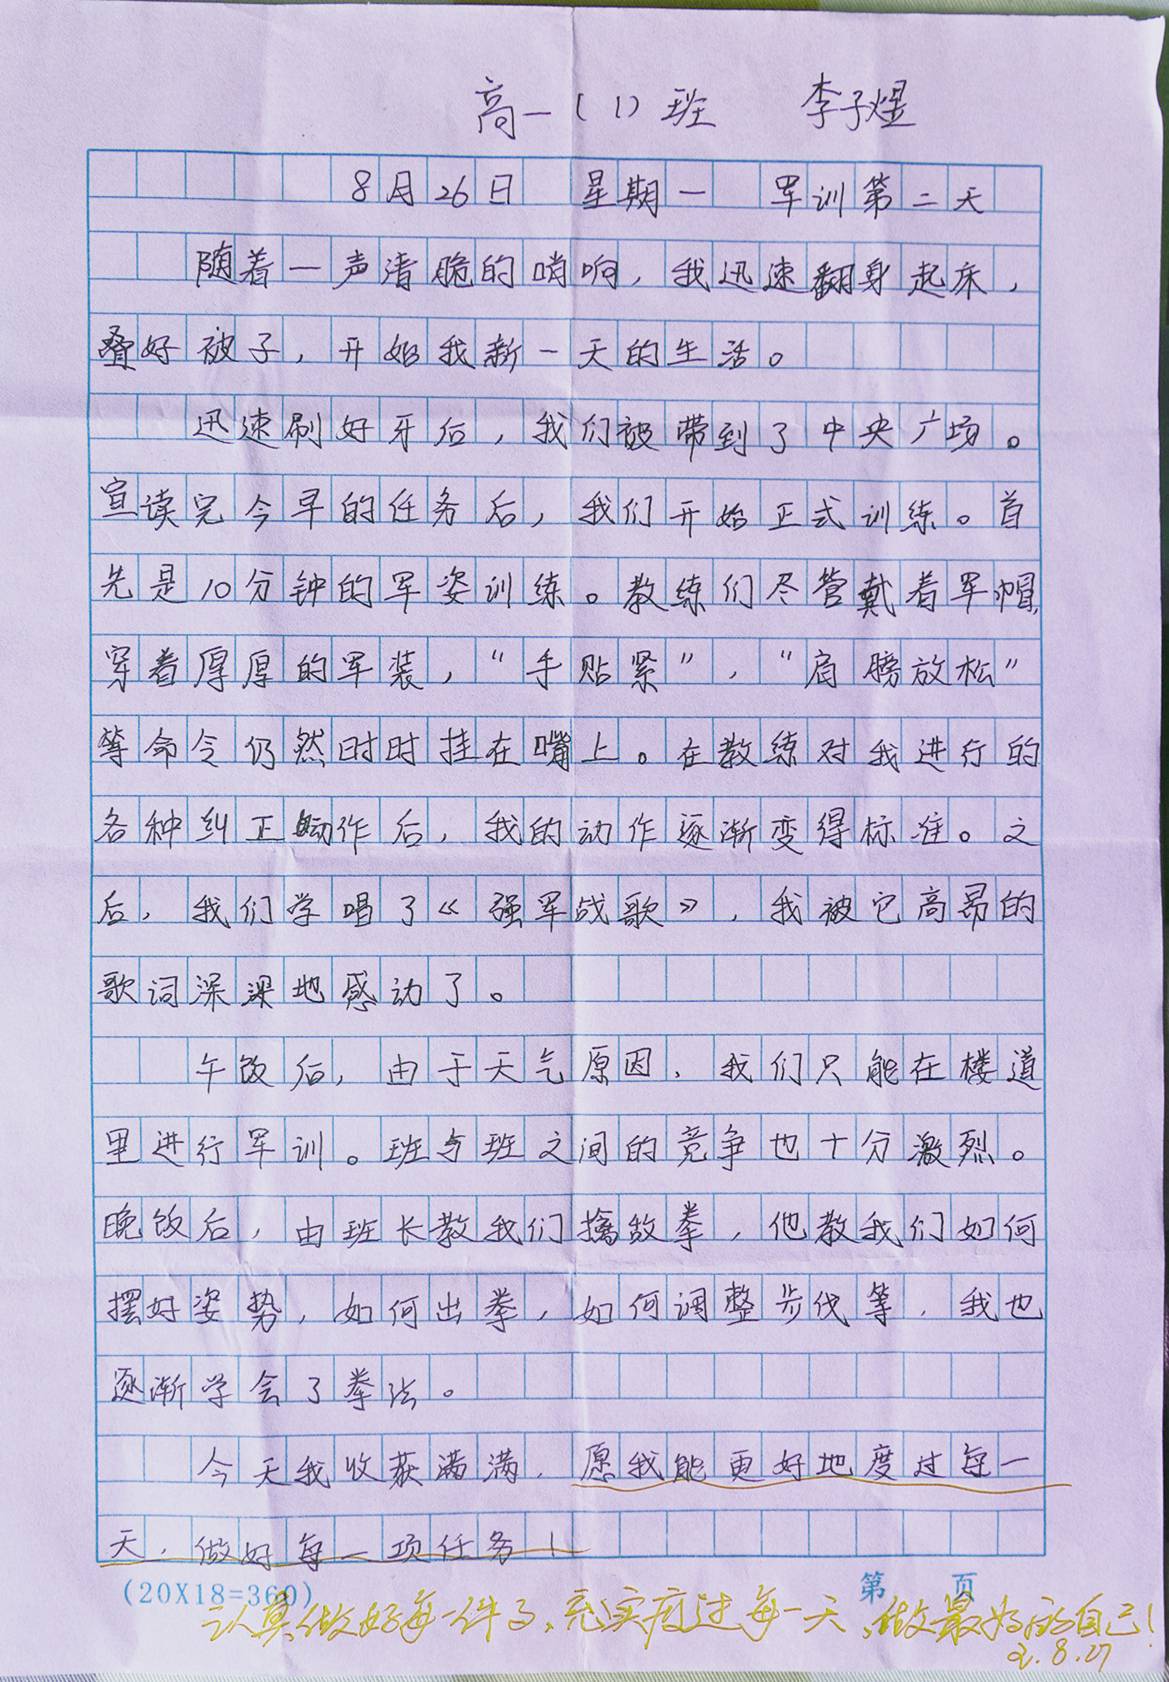 高一(1)班 李子煜
8月26日 星期一 军训第二天
随着一声清脆的哨响,我迅速翻身起床,
叠好被子,开始我新一天的生活。
迅速刷好牙后,我们被带到了中央广场。
宣读完今早的任务后,我们开始正式训练。首
先是10分钟的军姿训练。教练们尽管戴着军帽,
穿着厚厚的军装,“手贴紧”,“肩膀放松”
等命令仍然时时挂在嘴上。在教练对我进行的
各种纠正动作后,我的动作逐渐变得标准。之
后,我们学唱了《强军战歌》,我被它高昂的
歌词深深地感动了。
午饭后,由于天气原因,我们只能在楼道
里进行军训。班与班之间的竞争也十分激烈。
晚饭后,由班长教我们擒敌拳,他教我们如何
摆好姿势,如何出拳,如何调整步伐等,我也
逐渐学会了拳法。
今天我收获满满,愿我能更好地度过每一
天,做好每一项任务!
(20X18=360) 第 页
认真做好每一件事,充实度过每一天,做最好的自己!
8.27